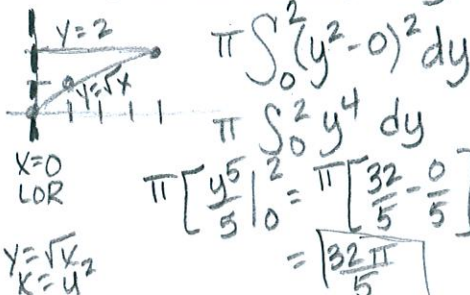 y=2
y=√x
x=0
LOR
y=√x
x=y²
π∫₀²(y²-0)² dy
π∫₀² y⁴ dy
π[y⁵/5|₀² = π[32/5 - 0/5]
= 32π/5